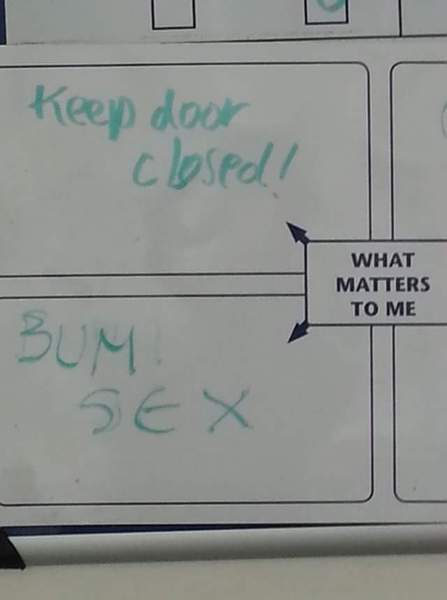 Keep door
closed!
WHAT
MATTERS
TO ME
BUM!
SEX